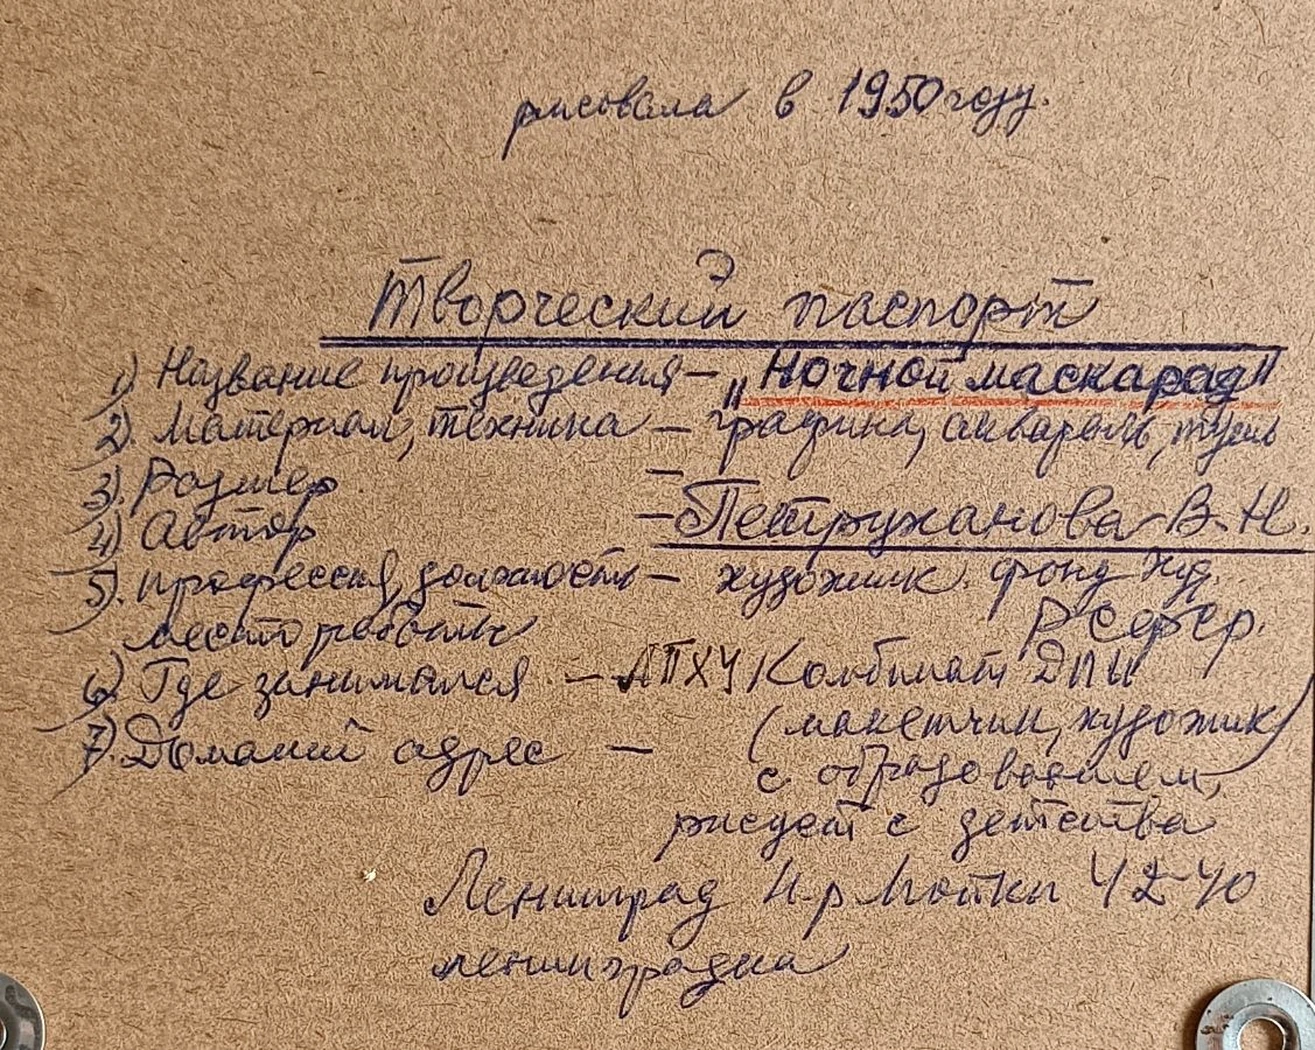 рисовала в 1950 году.
Творческий паспорт
1) Название произведения – „Ночной маскарад"
2). Материал, техника – графика, акварель, тушь
3). Размер –
4) Автор – Петружанова В. Н.
5). профессия, должность – художник. фонд худ.
место работы РСФСР.
6) Где занимался – ЛПХУ Комбинат ДПИ
7). Домаший адрес – (макетчик, художник)
с образованием,
рисует с детства
Ленинград н-р Мойки 42-40
ленинградка